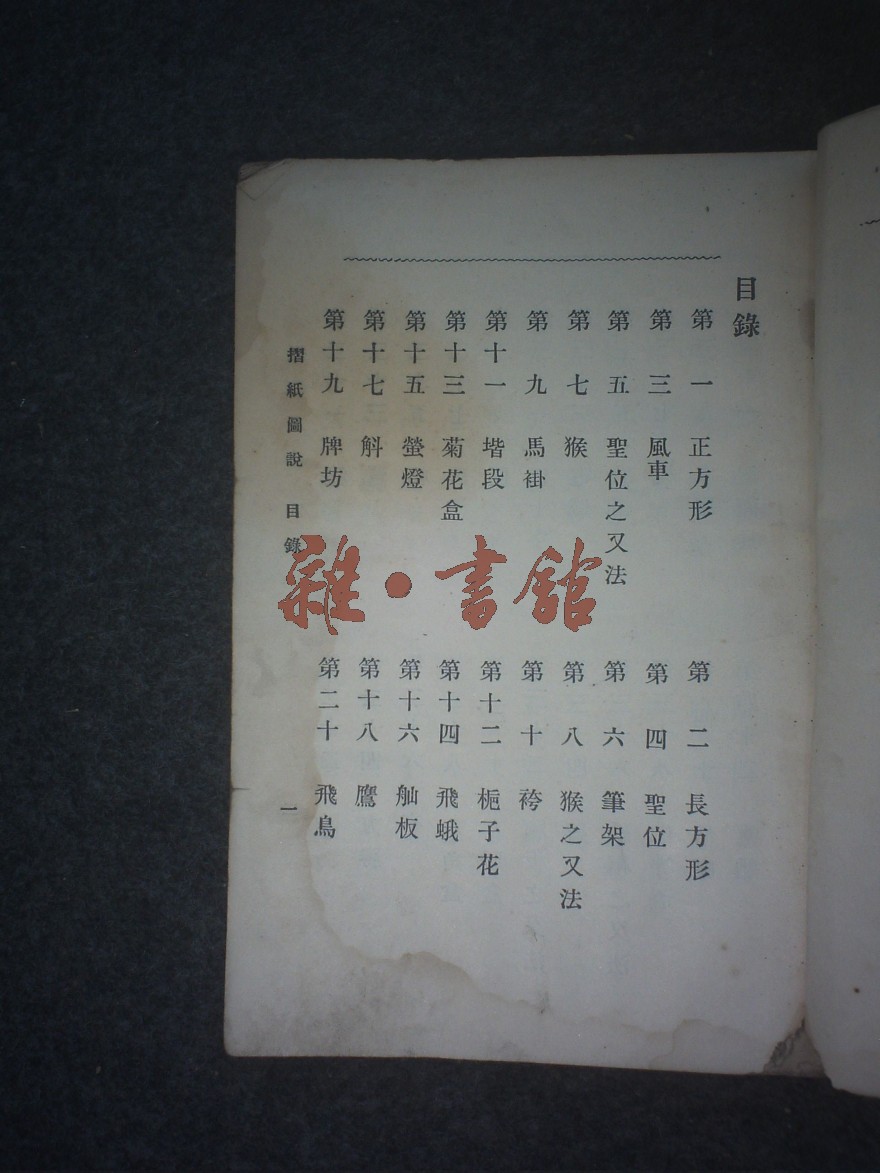 目錄
第一 正方形
第二 長方形
第三 風車
第四 聖位
第五 聖位之又法
第六 筆架
第七 猴
第八 猴之又法
第九 馬褂
第十 袴
第十一 堦段
第十二 梔子花
第十三 菊花盒
第十四 飛蛾
第十五 螢燈
第十六 舢板
第十七 斛
第十八 鷹
第十九 牌坊
第二十 飛鳥
摺紙圖說 目錄
一
雜·書館